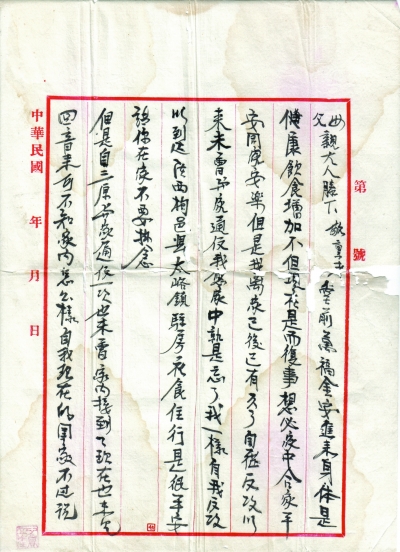 第 號
父母親大人膝下敬稟者 堂前萬福金安進來身体是
健康飲食增加不但兒在是而復事想必家中合家平
安同居安樂但是我離家已後已有 了自從反攻以
來未曾與家通信我 家中就是忘了我一樣自我反攻
以到達陝西栒邑縣太峪鎮駐房衣食住行是很平安
請你在家不要掛念
但是自三原 通信一次也未曾家內接到了現在也未見
回音來可不知家內怎么樣自我現在的開 不过說
中華民國 年 月 日